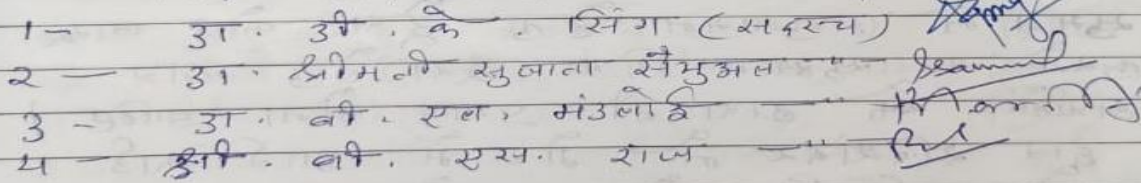 1- डा. डी. के. सिंग (सदस्य)
2 - डा. श्रीमती सुजाता सैमुअल - "
3 - डा. बी. एल. मंडलोई - "
4 - श्री. बी. एस. राज - "